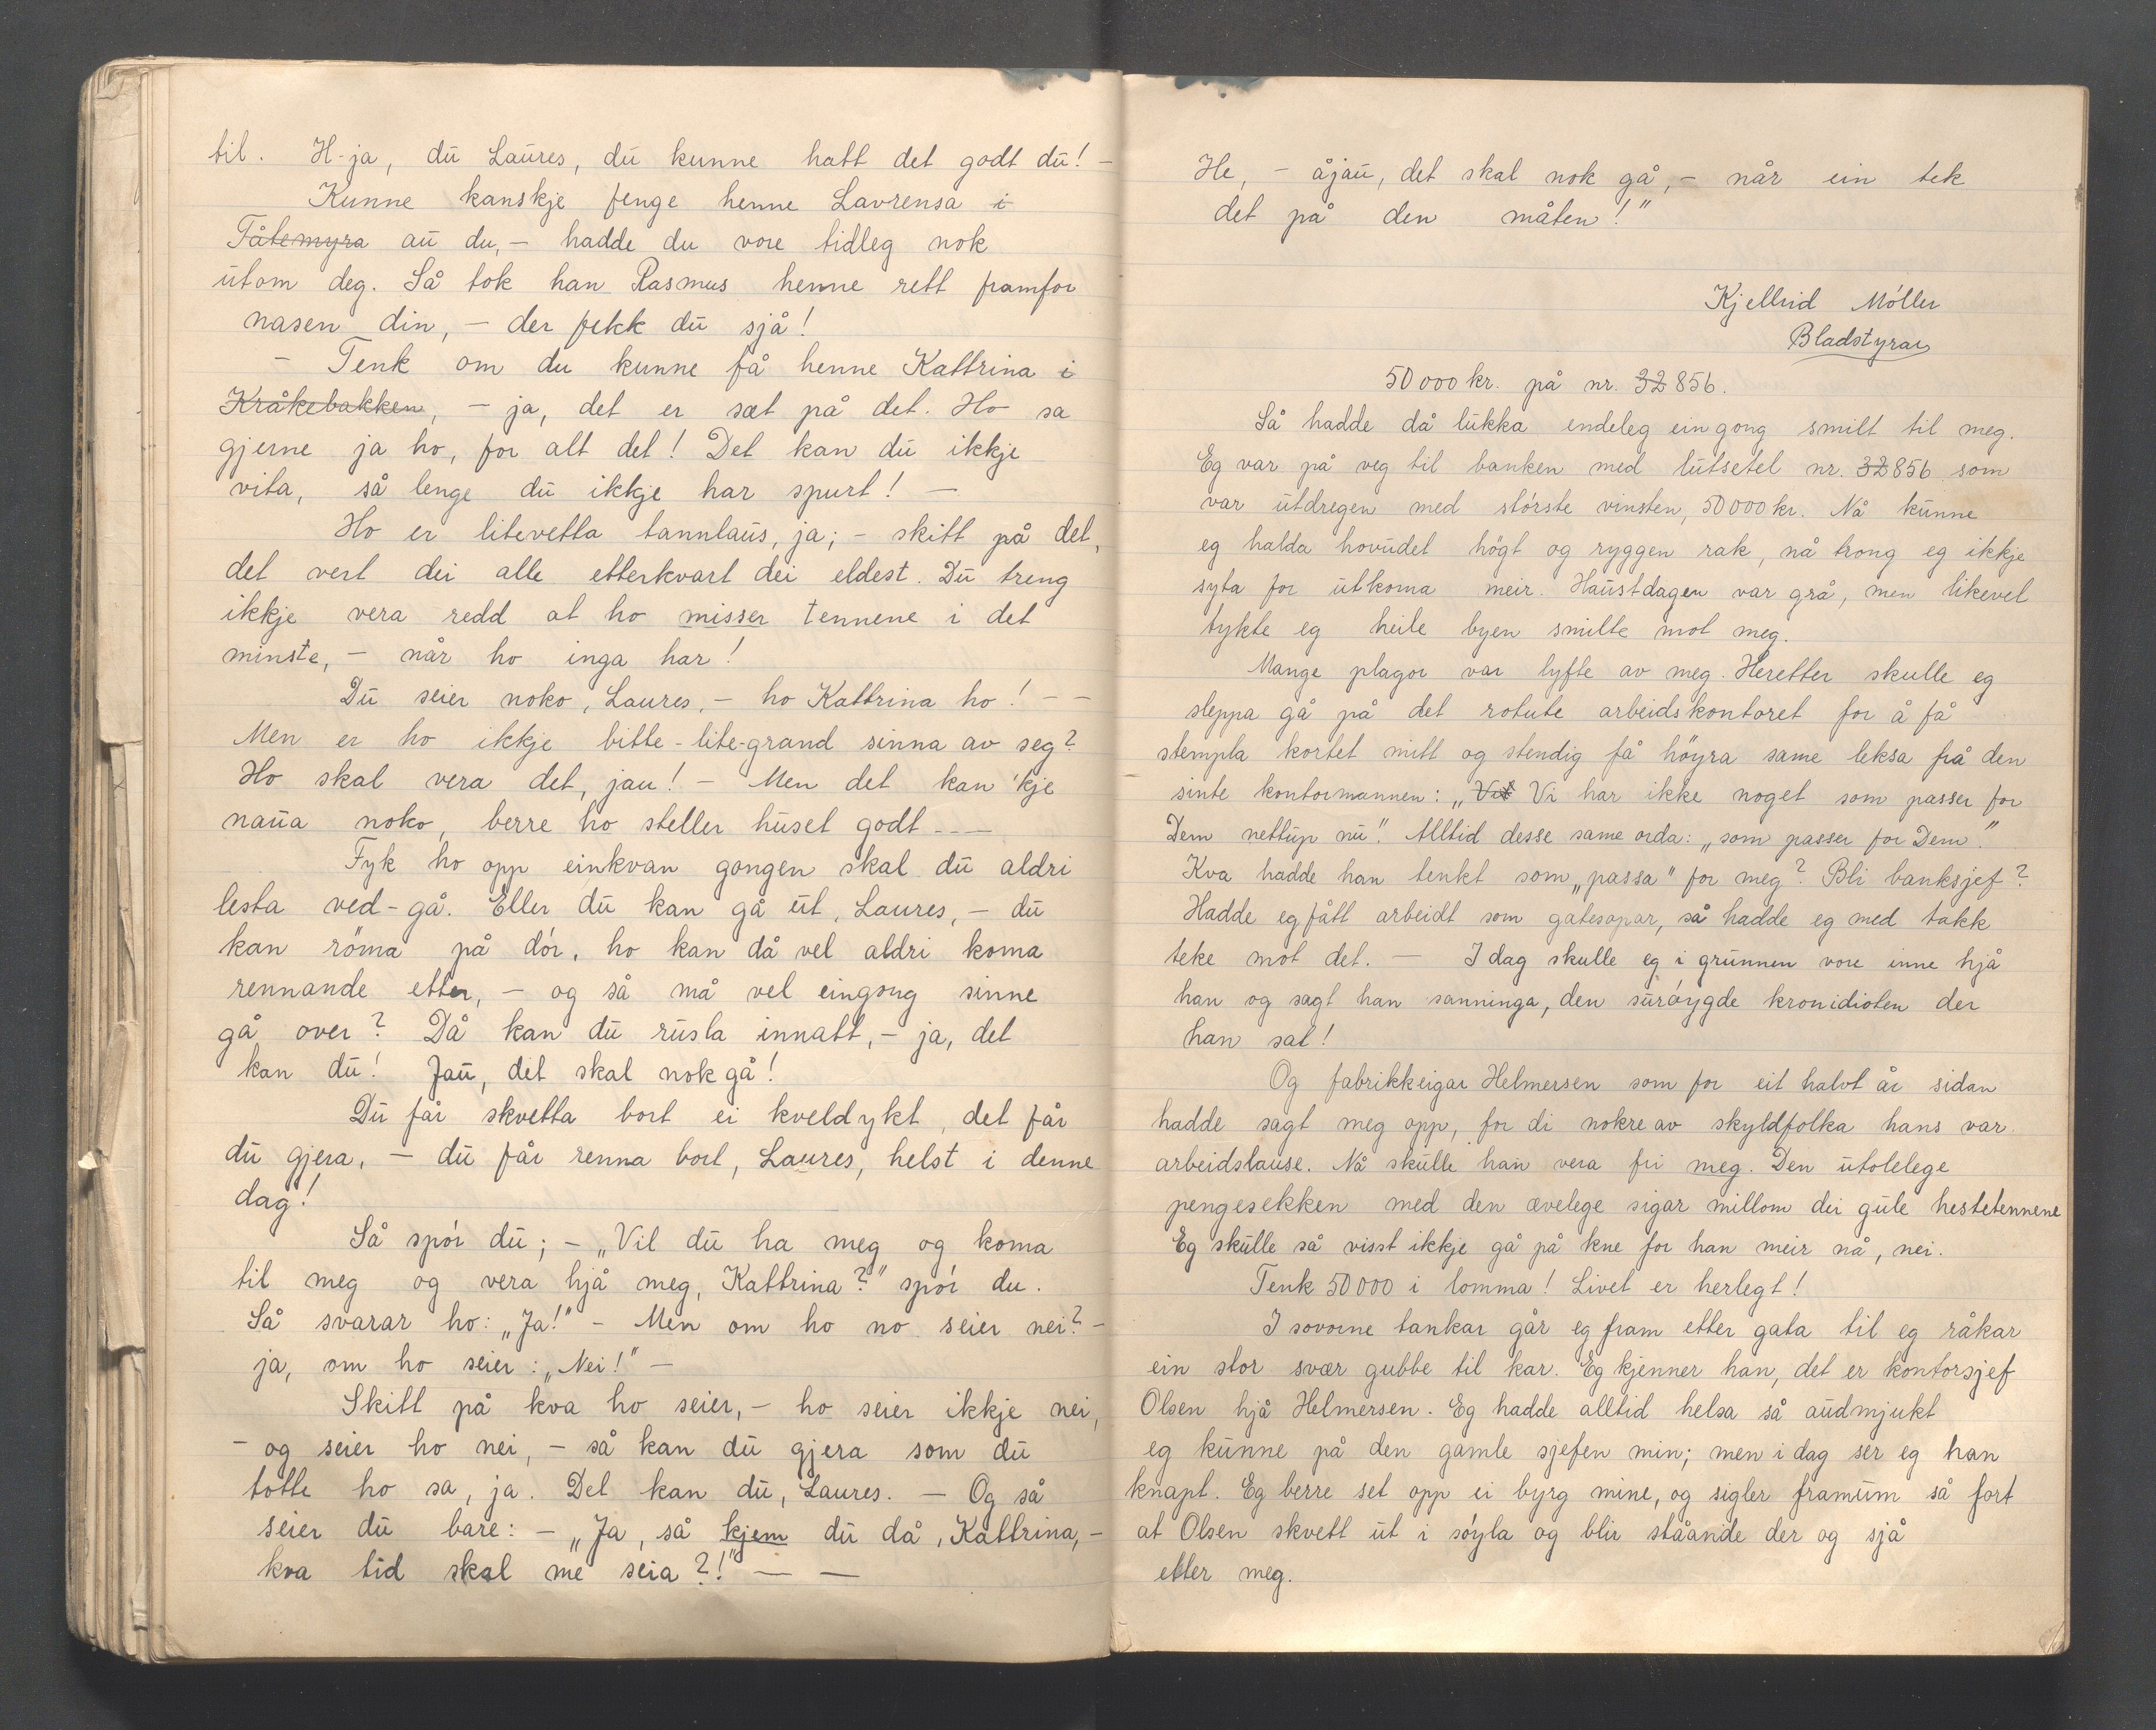 til. H-ja, du Laures, du kunne hatt det godt du! -
Kunne kanskje fenge henne Lavrensa i
Tåtemyra au du, - hadde du vore tidleg nok
utom deg. Så tok han Rasmus henne rett framfor
nasen din, - der fekk du sjå!
- Tenk om du kunne få henne Kattrina i
Kråkebakken, - ja, det er sæt på det. Ho sa
gjerne ja ho, for alt det! Det kan du ikkje
vita, så lenge du ikkje har spurt! -
Ho er litevetta tannlaus, ja; - skitt på det,
det vert dei alle etterkvart dei eldest. Du treng
ikkje vera redd at ho misser tennene i det
minste, - når ho inga har!
Du seier noko, Laures, - ho Kattrina ho! - -
Men er ho ikkje bitte-lite-grand sinna av seg?
Ho skal vera det, jau! - Men det kan 'kje
naua noko, berre ho steller huset godt - - -
Fyk ho opp einkvan gongen skal du aldri
lesta ved-gå. Eller du kan gå ut, Laures, - du
kan röma på dór, ho kan då vel aldri koma
rennande etter, - og så må vel eingong sinne
gå over? Då kan du rusla innatt, - ja, det
kan du! Jau, det skal nok gå!
Du får skvetta bort ei kveldykt, det får
du gjera, - du får renna bort, Laures, helst i denne
dag!
Så spór du; - „Vil du ha meg og koma
til meg og vera hjå meg, Kattrina?" spór du.
Så svarar ho: „Ja!" - Men om ho no seier nei? -
ja, om ho seier: „Nei!" -
Skitt på kva ho seier, - ho seier ikkje nei,
- og seier ho nei, - så kan du gjera som du
totte ho sa, ja. Det kan du, Laures. - Og så
seier du bare: - „Ja, så kjem du då, Kattrina, -
kva tid skal me seia?!" - -
He, - åjau, det skal nok gå, - når ein tek
det på den måten!"
Kjellrid Móller
Bladstyrar
50 000 kr. på nr. 32856.
Så hadde då lukka endeleg ein gong smilt til meg.
Eg var på veg til banken med lutsetel nr. 32856 som
var utdregen med stórste vinsten, 50 000 kr. Nå kunne
eg halda hovudet högt og ryggen rak, nå trong eg ikkje
syta for utkoma meir. Haustdagen var grå, men likevel
tykte eg heile byen smilte mot meg.
Mange plagor var lyfte av meg. Heretter skulle eg
sleppa gå på det rotute arbeidskontoret for å få
stempla kortet mitt og stendig få höyra same leksa frå den
sinte kontormannen: „Vil Vi har ikke noget som passer for
Dem nettup nu". Alltid desse same orda: „som passer for Dem".
Kva hadde han tenkt som „passa" for meg? Bli banksjef?
Hadde eg fått arbeidt som gatesopar, så hadde eg med takk
teke mot det. - I dag skulle eg i grunnen vore inne hjå
han og sagt han sanninga, den suróygde kronidioten der
han sat!
Og fabrikkeigar Helmersen som for eit halvt år sidan
hadde sagt meg opp, for di nokre av skyldfolka hans var
arbeidslause. Nå skulle han vera fri meg. Den utolelege
pengesekken med den ævelege sigar millom dei gule hestetennene
Eg skulle så visst ikkje gå på kne for han meir nå, nei.
Tenk 50 000 i lomma! Livet er herlegt!
I sovorne tankar går eg fram etter gata til eg råkar
ein stor svær gubbe til kar. Eg kjenner han, det er kontorsjef
Olsen hjå Helmersen. Eg hadde alltid helsa så audmjukt
eg kunne på den gamle sjefen min; men i dag ser eg han
knapt. Eg berre set opp ei byrg mine, og sigler framum så fort
at Olsen skvett ut i sóyla og blir ståande der og sjå
etter meg.